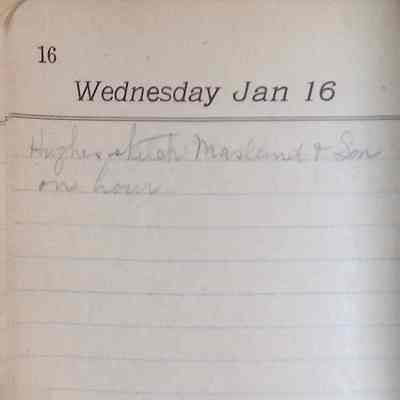 16
Wednesday Jan 16
Hughes struck Masland & Son
one hour